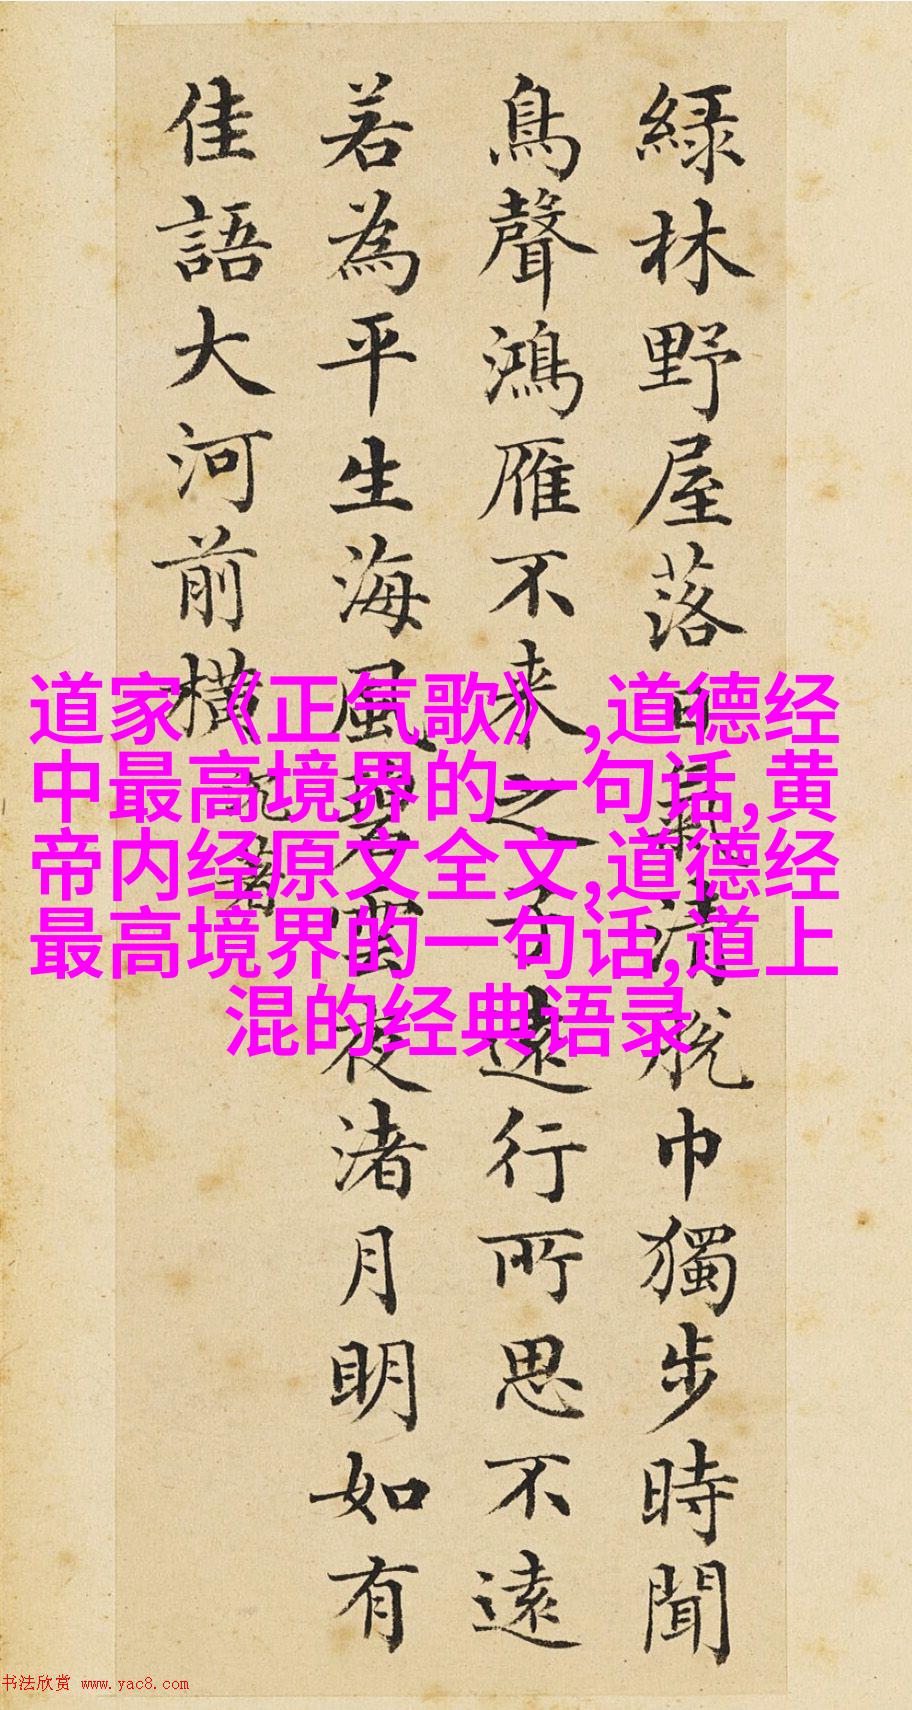 綠林野屋落日氣清脫巾獨步時聞
鳥聲鴻雁不來之子遠行所思不遠
若為平生海風碧雲夜渚月明如有
佳語大河前橫
沉著
道家《正气歌》,道德经
中最高境界的一句话,黄
帝内经原文全文,道德经
最高境界的一句话,道上
混的经典语录
书法欣赏 www.yac8.com